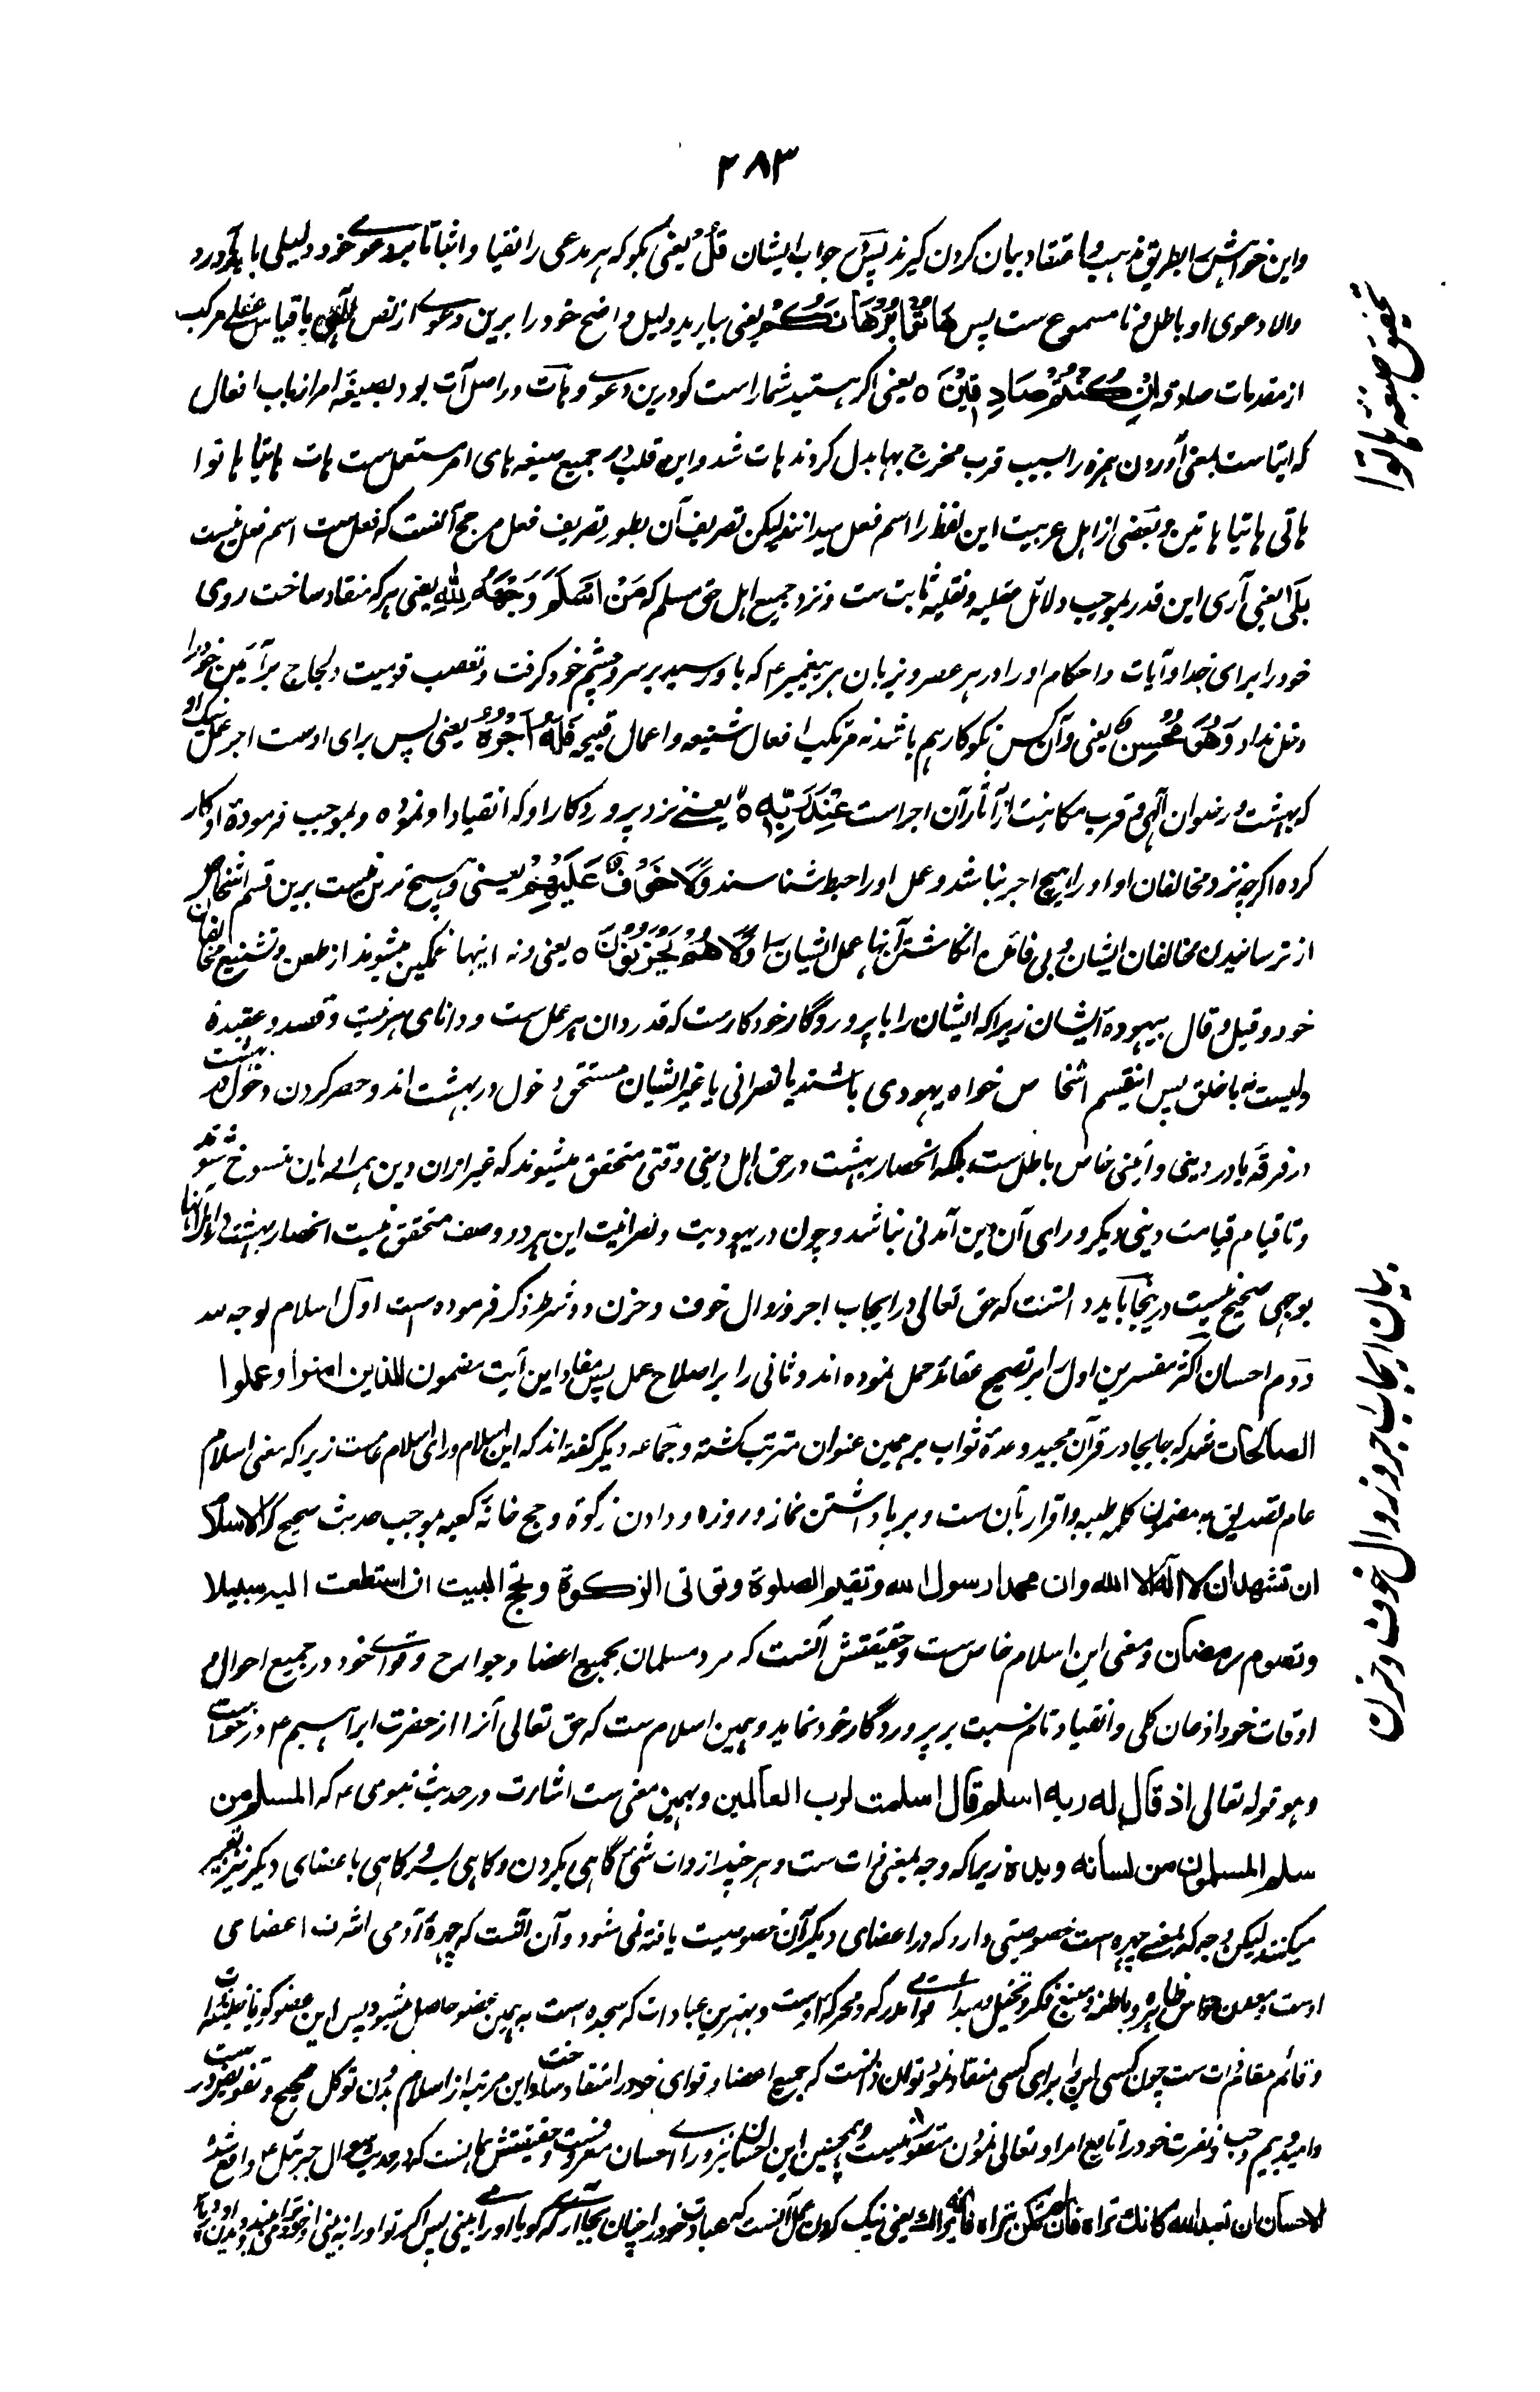 ۲۸۳
واین خواهش را بطریق مذهب و اعتقاد بیان کردن گیرند پس در جواب ایشان قُلْ یعنی بگو که هر مدعی را نفیا و اثباتا بر دعوی خود دلیلی باید آورد
والا دعوی او باطل و نا مسموع ست پس هَاتُوْا بُرْهَانَكُمْ یعنی بیارید دلیل واضح خود را برین دعوی از نص الٰهی یا قیاس عقلی مرکب
از مقدمات صادقه اِنْ كُنْتُمْ صَادِقِيْنَ ه یعنی اگر هستید شما راست گو درین دعوی و هات در اصل آت بود بصیغه امر از باب افعال
که ایتاست بمعنی آوردن همزه را بسبب قرب مخرج بها بدل کردند هات شد و این قلب در جمیع صیغه های امر مستعمل ست هات هاتیا هاتوا
هاتی هاتیا هاتین و بعضی از اهل عربیت این لفظ را اسم فعل میدانند لیکن تصریف آن بطور تصریف فعل مرجح آنست که فعل ست اسم فعل نیست
بَلٰی یعنی آری این قدر بموجب دلائل عقلیه و نقلیه ثابت ست و نزد جمیع اهل حق مسلم که مَنْ اَسْلَمَ وَجْهَهٗ لِلّٰهِ یعنی هر که منقاد ساخت روی
خود را برای خدا و آیات و احکام او را در هر عصر و بزبان هر پیغمبر ع که باو رسید بر سر و چشم خود گرفت و تعصب قومیت و لجاج بر آئین خود را
دخل نداد وَهُوَ مُحْسِنٌ یعنی و آن کس نکوکار هم باشد نه مرتکب افعال شنیعه و اعمال قبیحه فَلَهٗ اَجْرُهٗ یعنی پس برای اوست اجر عمل نیک او
که بهشت و رضوان الٰهی و قرب مکانیت از آثار آن اجر است عِنْدَ رَبِّهٖ ه یعنی نزد پروردگار او که انقیاد او نموده و بموجب فرموده او کار
کرده اگرچه نزد مخالفان او او را هیچ اجر نباشد و عمل او را حبط شناسند وَلَا خَوْفٌ عَلَيْهِمْ یعنی و هیچ ترس نیست برین قسم اشخاص
از ترسانیدن مخالفان ایشان و بی فائده انگاشتن آنها عمل ایشان را وَلَا هُمْ يَحْزَنُوْنَ ه یعنی و نه اینها غمگین میشوند از طعن و تشنیع مخالفان
خود و قیل و قال بیهوده ایشان زیرا که ایشان را با پروردگار خود کارست که قدردان هر عمل ست و دانای هر نیت و قصد و عقیده
دلیست نه با خلق پس اینقسم اشخاص خواه یهودی باشند یا نصرانی یا غیر ایشان مستحق دخول در بهشت اند و حصر کردن دخول در بهشت
در فرقه یا در دینی و آئینی خاص باطل ست بلکه انحصار بهشت در حق اهل دینی وقتی متحقق میشوند که غیر از ان دین همه ادیان منسوخ شوند
و تا قیام قیامت دینی دیگر ورای آن دین آمدنی نباشد و چون در یهودیت و نصرانیت این هر دو وصف متحقق نیست انحصار بهشت در اهل آنها
بوجهی صحیح نیست درینجا باید دانست که حق تعالی در ایجاب اجر و زوال خوف و حزن دو شرط ذکر فرموده ست اول اسلام لوجه لله
دوم احسان اکثر مفسرین اول را بر تصحیح عقائد حمل نموده اند و ثانی را بر اصلاح عمل پس مفاد این آیت مضمون للذین امنوا و عملوا
الصالحات شد که جابجا در قرآن مجید وعده ثواب بر همین عنوان مترتب گشته و جماعه دیگر گفته اند که این اسلام ورای اسلام عامست زیرا که معنی اسلام
عام تصدیق به مضمون کلمه طیبه و اقرار بآن ست و برپا داشتن نماز و روزه و دادن زکوة و حج خانه کعبه بموجب حدیث صحیح که الاسلام
ان تشهد ان لا اله الا الله وان محمدا رسول الله وتقیم الصلوة وتؤتی الزکوة وتحج البیت ان استطعت الیه سبیلا
وتصوم رمضان و معنی این اسلام خاص ست و حقیقتش آنست که مرد مسلمان بجمیع اعضا و جوارح و قوای خود در جمیع احوال و
اوقات خود اذعان کلی و انقیاد تام نسبت بر پروردگار خود نماید و همین اسلام ست که حق تعالی آنرا از حضرت ابراهیم ع در خواست
وهو قوله تعالی اذ قال له ربه اسلم قال اسلمت لرب العالمین و بهمین معنی ست اشارت در حدیث نبوی ع که المسلم من
سلم المسلمون من لسانه ویده زیرا که وجه بمعنی ذات ست و هر چند از ذات شی گاهی بگردن و گاهی بسر و گاهی باعضای دیگر نیز تعبیر
میکنند لیکن وجه که بمعنی چهره است خصوصیتی دارد که در اعضای دیگر آن خصوصیت یافته نمی شود و آن آنست که چهره آدمی اشرف اعضای
اوست و معدن حواس ظاهره و باطنه و منبع فکر و تخیل و مبدای قوای مدرکه و محرکه اوست و بهترین عبادات که سجده است به همین عضو حاصل میشود پس این عضو گویا خلیفه
و قائم مقام ذات ست چون کسی این را برای کسی منقاد نمود توان دانست که جمیع اعضا و قوای خود را منقاد ساخت و این مرتبه از اسلام بدون توکل صحیح و تفویض
و امید و بیم و حب و نفرت خود را تابع امر او تعالی نمودن متصور نیست و همچنین این احسان نیز ورای احسان معروفست و حقیقتش همانست که در حدیث سوال جبرئیل ع واقع شده
الاحسان ان تعبد الله کانك تراه فان لم تکن تراه فانه یراك یعنی نیک کردن عمل آنست که عبادت خود را چنان بجا آری که گویا او را می بینی پس اگر تو او را نه بینی
تحقیق صیغه هاتوا
بیان ایجاب اجر و زوال خوف و حزن